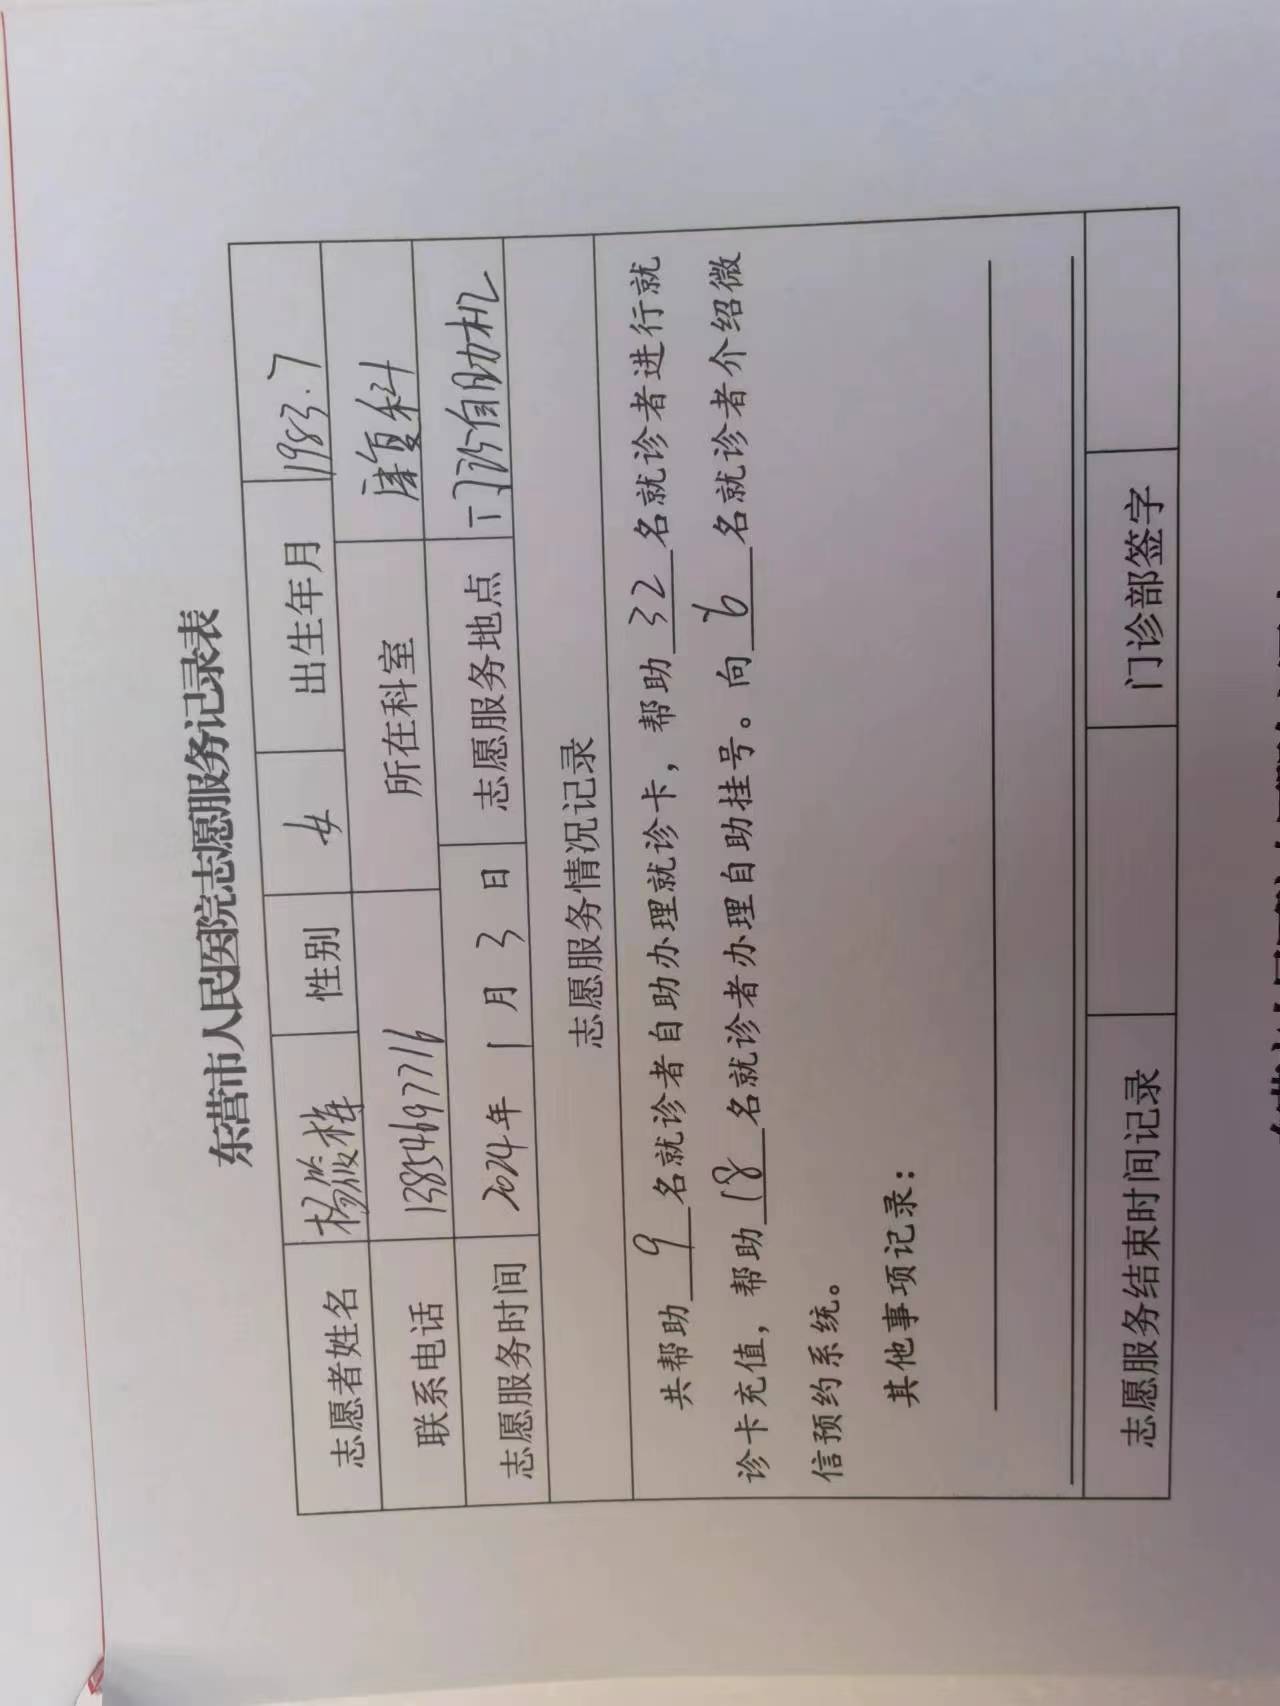 东营市人民医院志愿服务记录表
志愿者姓名 杨筱梅 性别 女 出生年月 1983.7
联系电话 13854697716 所在科室 康复科
志愿服务时间 2024年 1 月 3 日 志愿服务地点 门诊自助机
志愿服务情况记录
共帮助 9 名就诊者自助办理就诊卡，帮助 32 名就诊者进行就
诊卡充值，帮助 18 名就诊者办理自助挂号。向 6 名就诊者介绍微
信预约系统。
其他事项记录：
志愿服务结束时间记录 门诊部签字